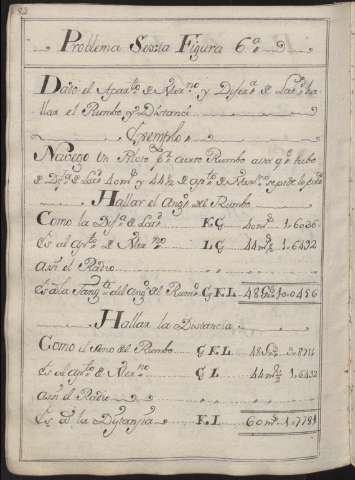 82
Problema Sexta Figura 6.ª
Dato el Apar.to de Mer.no y Difer.a de Lat.d ha-
llar el Rumbo y Distancia
Exemplo
Navego un Piloto p.r cierto Rumbo asta q.e tubo
de Dif.a de Lat.d 40 m y 44½ de ap.to de Mer.no se pide lo
Hallar el Ang.o del Rumbo
Como la Dif.a de Lat.d E.G 40 m 1.6036
Es al ap.to de Mer.no L.G 44 m ½ 1.6492
Asi el Radio
Es a la Tang.te del Ang.o del Rumo G E.L 48 10.0456
Hallar la Distancia
Como el seno del Rumbo G E.L 48 9.8711
Es al ap.to de Mer.no G L 44 m ½ 1.6492
Asi el Radio
Es a la Distancia E.L 60 m 1.7781